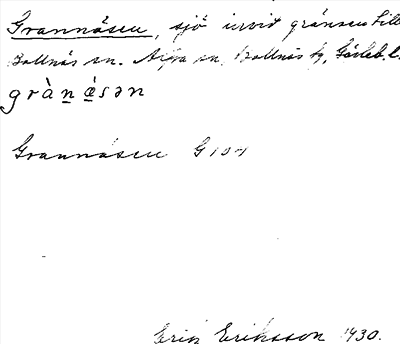 Grannåsen, sjö invid gränsen till
Bollnäs sn. Alfta sn, Bollnäs tg, Gävleb. l.
grànǻsən
Grannåsen G 104
Erik Eriksson 1930.